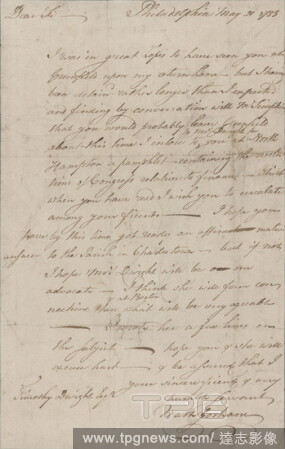 Dear Sir Philadelphia May 20 1783
I was in great hopes to have seen you at
Greenfield upon my return home but I having
been detain'd longer than I expected
and finding by conversation with Mr
that you would probably leave Greenfield
about this time I inclose to you at North
Hampton a pamphlet containing the
of Congress relative to finance which
when you have read I wish you to circulate
among your friends I hope you
have by this time got ready an affirmative
answer to the Parish in Charlestown but if not
I hope Mrs Dwight will be our
advocate I think she has some con
nections
at Boston
her a few lines on
the subject hope you & she will
excuse & be assured that I
your sincere friend & very
Timothy Dwight Esqr humble servant
Nath Gorham
TPG
www.tpgnews.com 達志影像